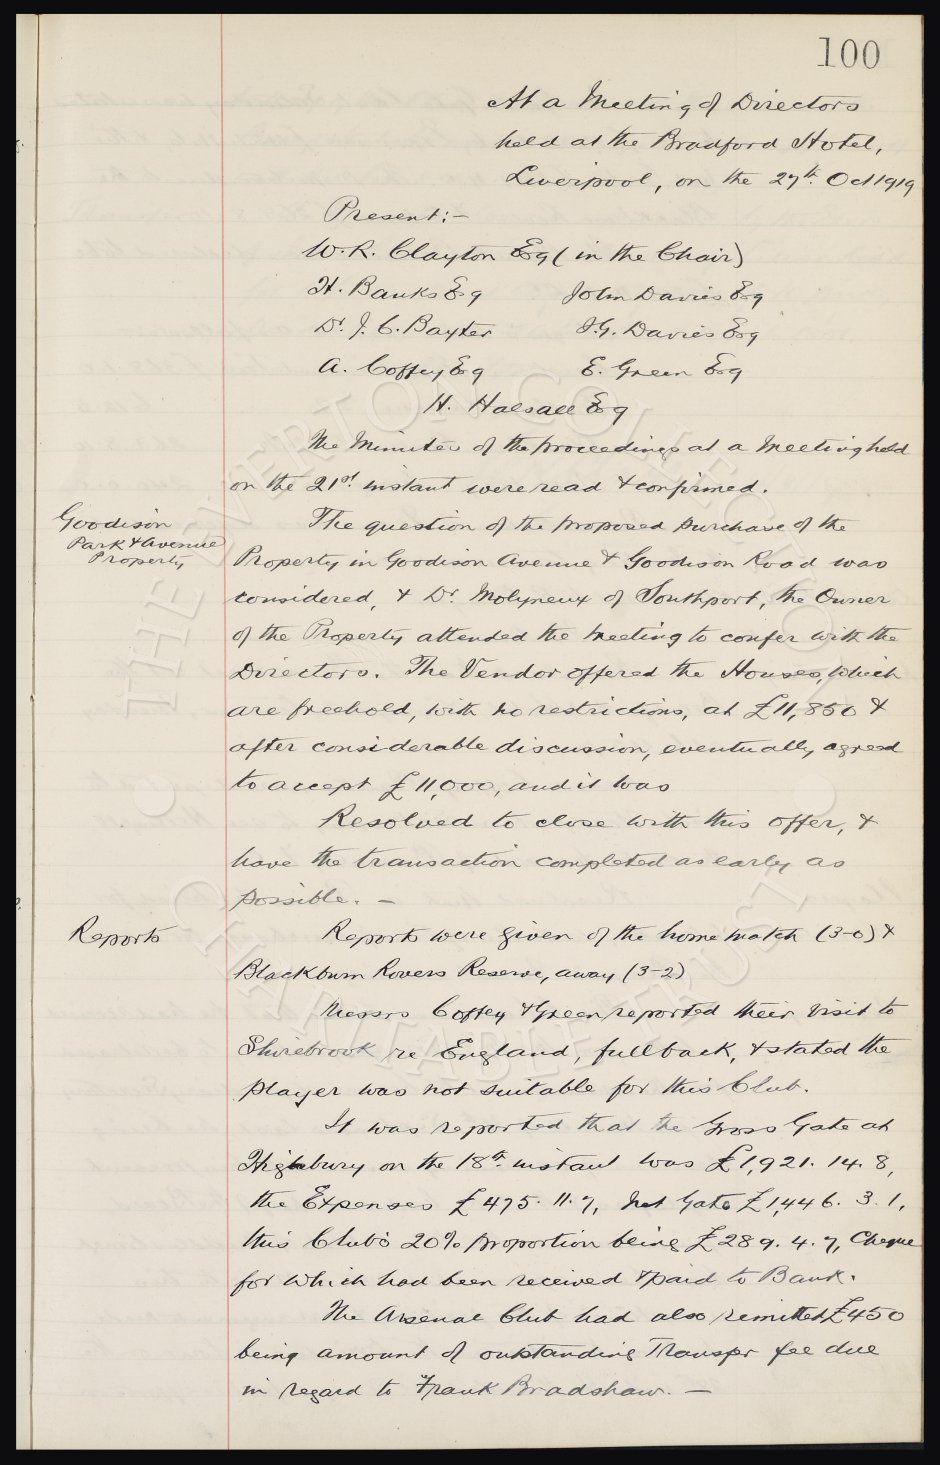 100
At a Meeting of Directors
held at the Bradford Hotel,
Liverpool, on the 27th. Oct 1919
Present:-
W. R. Clayton Esq (in the Chair)
H. Banks Esq John Davies Esq
Dr. J. C. Baxter J. G. Davies Esq
A. Coffey Esq E. Green Esq
H. Halsall Esq
The Minutes of the proceedings at a Meeting held
on the 21st. instant were read & confirmed.
Goodison
Park & Avenue
Property
The question of the proposed purchase of the
Property in Goodison Avenue & Goodison Road was
considered, & Dr. Molyneux of Southport, the Owner
of the Property attended the Meeting to confer with the
Directors. The Vendor offered the Houses, which
are freehold, with no restrictions, at £11,850 &
after considerable discussion, eventually agreed
to accept £11,000, and it was
Resolved to close with this offer, &
have the transaction completed as early as
possible. -
Reports
Reports were given of the home match (3-0) &
Blackburn Rovers Reserve, away (3-2)
Messrs Coffey & Green reported their visit to
Shirebrook re England, full back, & stated the
player was not suitable for this Club.
It was reported that the Gross Gate at
Highbury on the 18th. instant was £1,921. 14. 8,
the Expenses £475. 11. 7, Net Gate £1,446. 3. 1,
this Club's 20% proportion being £289. 4. 7, Cheque
for which had been received & paid to Bank.
The Arsenal Club had also remitted £450
being amount of outstanding Transfer fee due
in regard to Frank Bradshaw. -
THE EVERTON COLLECTION
CHARITABLE TRUST